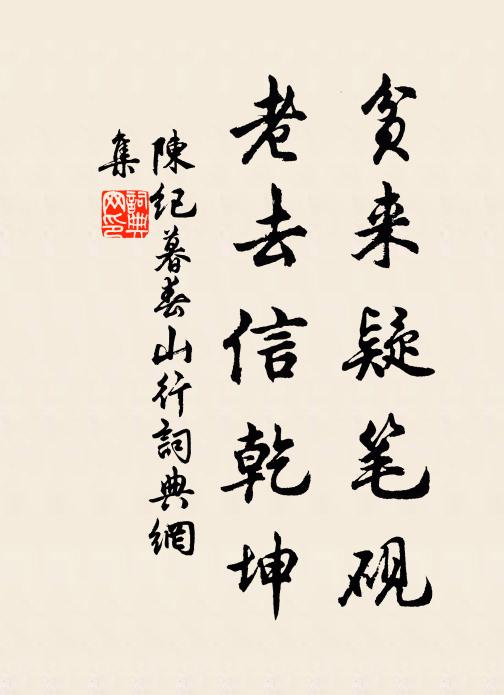 贫来疑笔砚
老去信乾坤
陳紀暮春山行詞典網
集
詞典
网印